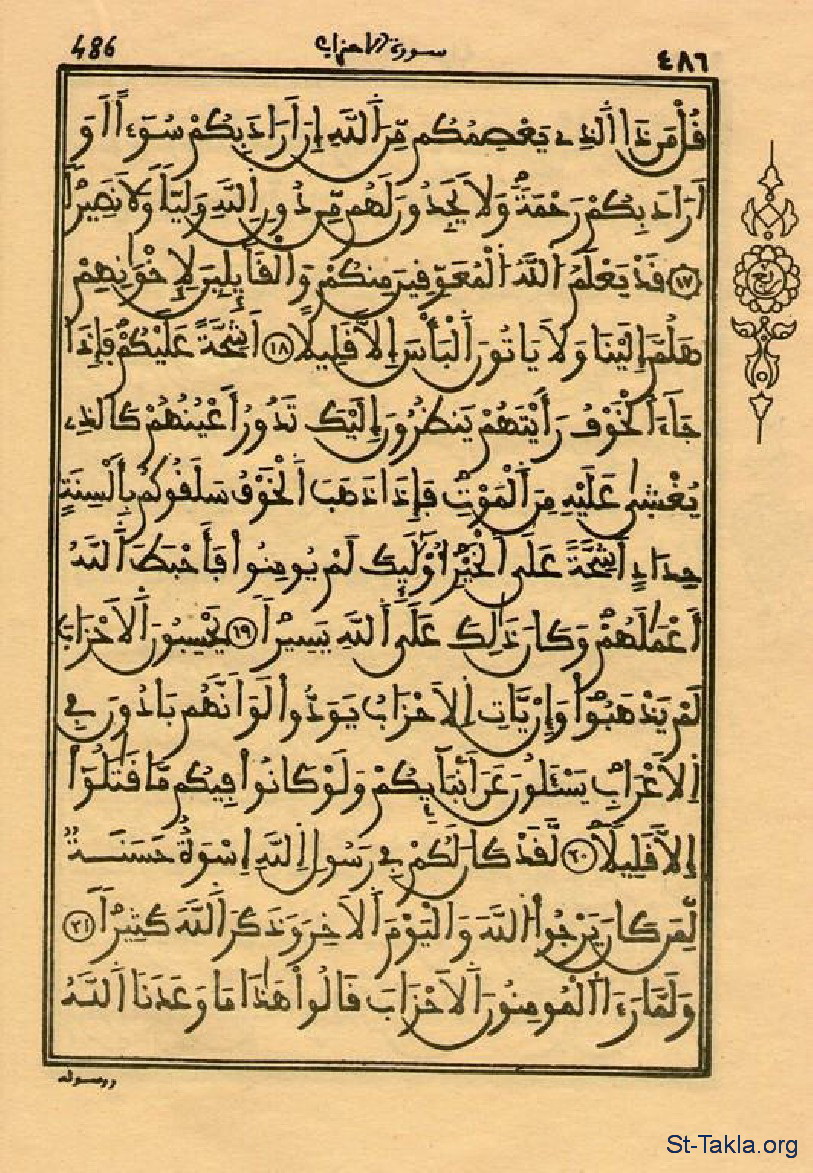 486 سورة الاحزاب ٤٨٦
قُلْ مَن ذَا اَ۬لذِے يَعْصِمُكُم مِّنَ اَ۬للَّهِ إِنْ اَرَادَ بِكُمْ سُوٓءاً اَوَ
اَرَادَ بِكُمْ رَحْمَةٗ وَلَا يَجِدُونَ لَهُم مِّن دُونِ اِ۬للَّهِ وَلِيّاٗ وَلَا نَصِيراٗ
١٧ قَدْ يَعْلَمُ اُ۬للَّهُ اُ۬لْمُعَوِّقِينَ مِنكُمْ وَالْقَآئِلِينَ لِإِخْوَٰنِهِمْ
هَلُمَّ إِلَيْنَا وَلَا يَاتُونَ اَ۬لْبَأْسَ إِلَّا قَلِيلاً ١٨ اَشِحَّةً عَلَيْكُمْ فَإِذَا
جَآءَ اَ۬لْخَوْفُ رَأَيْتَهُمْ يَنظُرُونَ إِلَيْكَ تَدُورُ أَعْيُنُهُمْ كَالذِے
يُغْش۪يٰ عَلَيْهِ مِنَ اَ۬لْمَوْتِ فَإِذَا ذَهَبَ اَ۬لْخَوْفُ سَلَقُوكُم بِأَلْسِنَةٍ
حِدَادٍ اَشِحَّةً عَلَي اَ۬لْخَيْرِ أُوْلَٰٓئِكَ لَمْ يُومِنُواْ فَأَحْبَطَ اَ۬للَّهُ
أَعْمَٰلَهُمْ وَكَانَ ذَٰلِكَ عَلَي اَ۬للَّهِ يَسِيراٗ ١٩ يَحْسِبُونَ اَ۬لَاحْزَابَ
لَمْ يَذْهَبُواْ وَإِنْ يَّاتِ اِ۬لَاحْزَابُ يَوَدُّواْ لَوَ اَنَّهُم بَادُونَ فِے
اِ۬لَاعْرَابِ يَسْـَٔلُونَ عَنَ اَنۢبَآئِكُمْ وَلَوْ كَانُواْ فِيكُم مَّا قَٰتَلُوٓاْ
إِلَّا قَلِيلاٗ ٢٠ لَّقَدْ كَانَ لَكُمْ فِے رَسُولِ اِ۬للَّهِ إِسْوَةٌ حَسَنَةٞ
لِّمَن كَانَ يَرْجُواْ اُ۬للَّهَ وَالْيَوْمَ اَ۬لَاخِرَ وَذَكَرَ اَ۬للَّهَ كَثِيراٗ ٢١
وَلَمَّا رَءَا اَ۬لْمُومِنُونَ اَ۬لَاحْزَابَ قَالُواْ هَٰذَا مَا وَعَدَنَا اَ۬للَّهُ
ورسوله
ربع
St-Takla.org